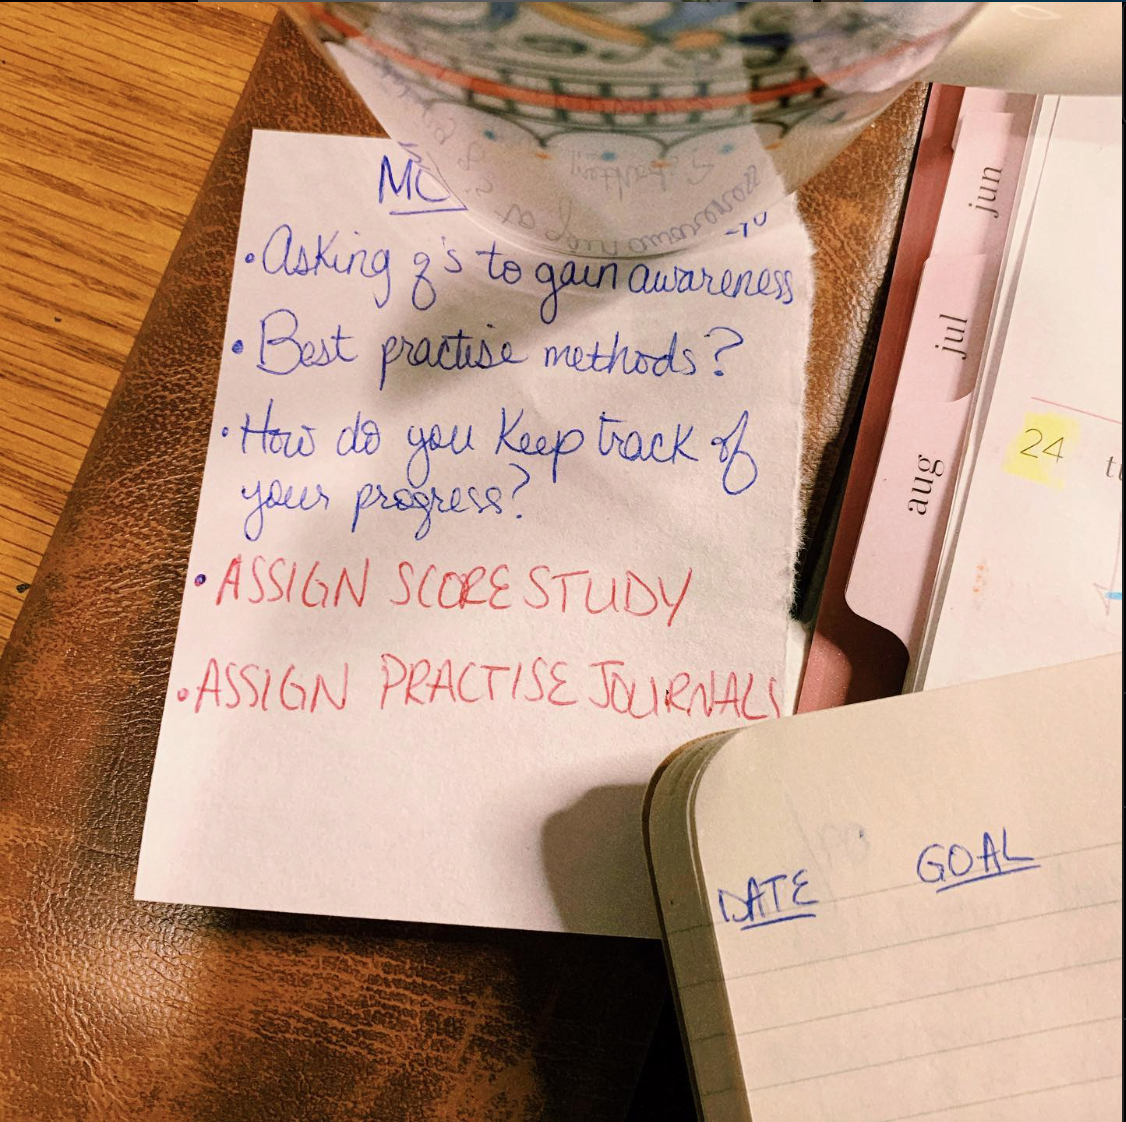 MC
• Asking q's to gain awareness
• Best practise methods?
• How do you keep track of
your progress?
• ASSIGN SCORE STUDY
• ASSIGN PRACTISE JOURNALS
jun
jul
aug
24
DATE GOAL